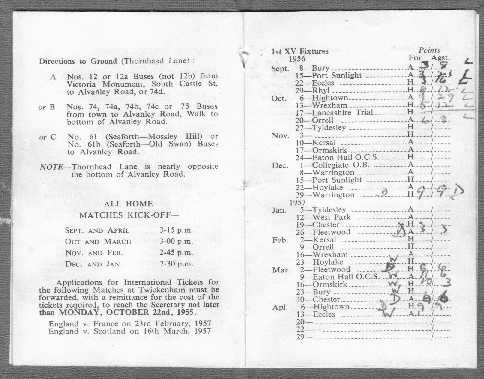 Directions to Ground (Thornhead Lane):
A Nos. 12 or 12a Buses (not 12b) from
Victoria Monument, South Castle St.
to Alvanley Road, or 74d.
or B Nos. 74, 74a, 74b, 74c or 75 Buses
from town to Alvanley Road. Walk to
bottom of Alvanley Road.
or C No. 61 (Seaforth—Mossley Hill) or
No. 61b (Seaforth—Old Swan) Buses
to Alvanley Road.
NOTE—Thornhead Lane is nearly opposite
the bottom of Alvanley Road.
ALL HOME
MATCHES KICK-OFF—
SEPT. AND APRIL 3-15 p.m.
OCT. AND MARCH 3-00 p.m.
NOV. AND FEB. 2-45 p.m.
DEC. AND JAN. 2-30 p.m.
Applications for International Tickets for
the following Matches at Twickenham must be
forwarded, with a remittance for the cost of the
tickets required, to reach the Secretary not later
than MONDAY, OCTOBER 22nd, 1956.
England v. France on 23rd February, 1957
England v. Scotland on 16th March, 1957
1st XV Fixtures Points
1956 For Agst.
Sept. 8—Bury A 3 8 L
15—Port Sunlight A 3 L
22—Eccles H 3 L
29—Rhyl H 12 L
Oct. 6—Hightown A 29 L
13—Wrexham H 12 L
17—Lancashire Trial H
20—Orrell A 6 3
27—Tyldesley H
Nov. 3
10—Kersal A
17—Ormskirk A
24—Eaton Hall O.C.S. H
Dec. 1—Collegiate O.B. A
8—Warrington A
15—Port Sunlight H
22—Hoylake A
29—Warrington H 9 9 D
1957
Jan. 5—Tyldesley A
12—West Park A
19—Chester H
26—Fleetwood D A 3 3
Feb. 2—Kersal H
9—Orrell H
16—Wrexham A
23—Hoylake W H
Mar. 2—Fleetwood D H 6 6
9—Eaton Hall O.C.S. W A
16—Ormskirk W H 3
23—Bury W H
30—Chester D A 6 6
Apl. 6—Hightown D H 9 9
13—Eccles W A
20—
22—
29—